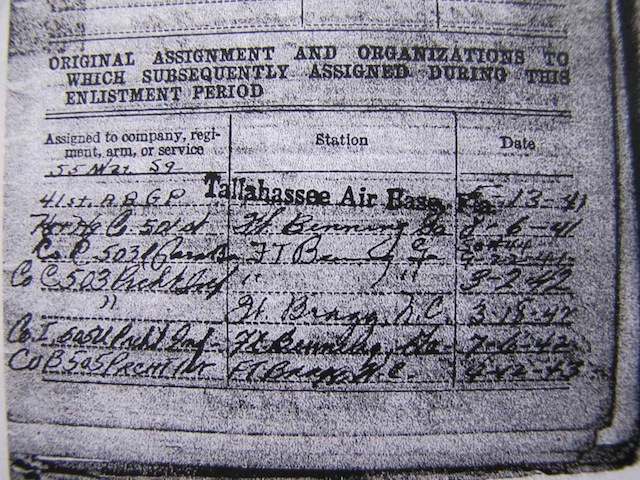 ORIGINAL ASSIGNMENT AND ORGANIZATIONS TO
WHICH SUBSEQUENTLY ASSIGNED DURING THIS
ENLISTMENT PERIOD
Assigned to company, regi-
ment, arm, or service
Station
Date
55 Mat. Sq
41st. A B G P Tallahassee Air Base, Fla. 5-13-41
Co 501st Ft. Benning Ga 8-6-41
Co 503d FT Benning Ga
Co C 503 Prcht Inf " " 3-2-42
" Ft. Bragg, N.C. 3-18-42
Co. I 505th Prcht Inf. Ft. Benning, Ga 7-6-42
Co B 505 Prcht Inf FT Bragg N.C.